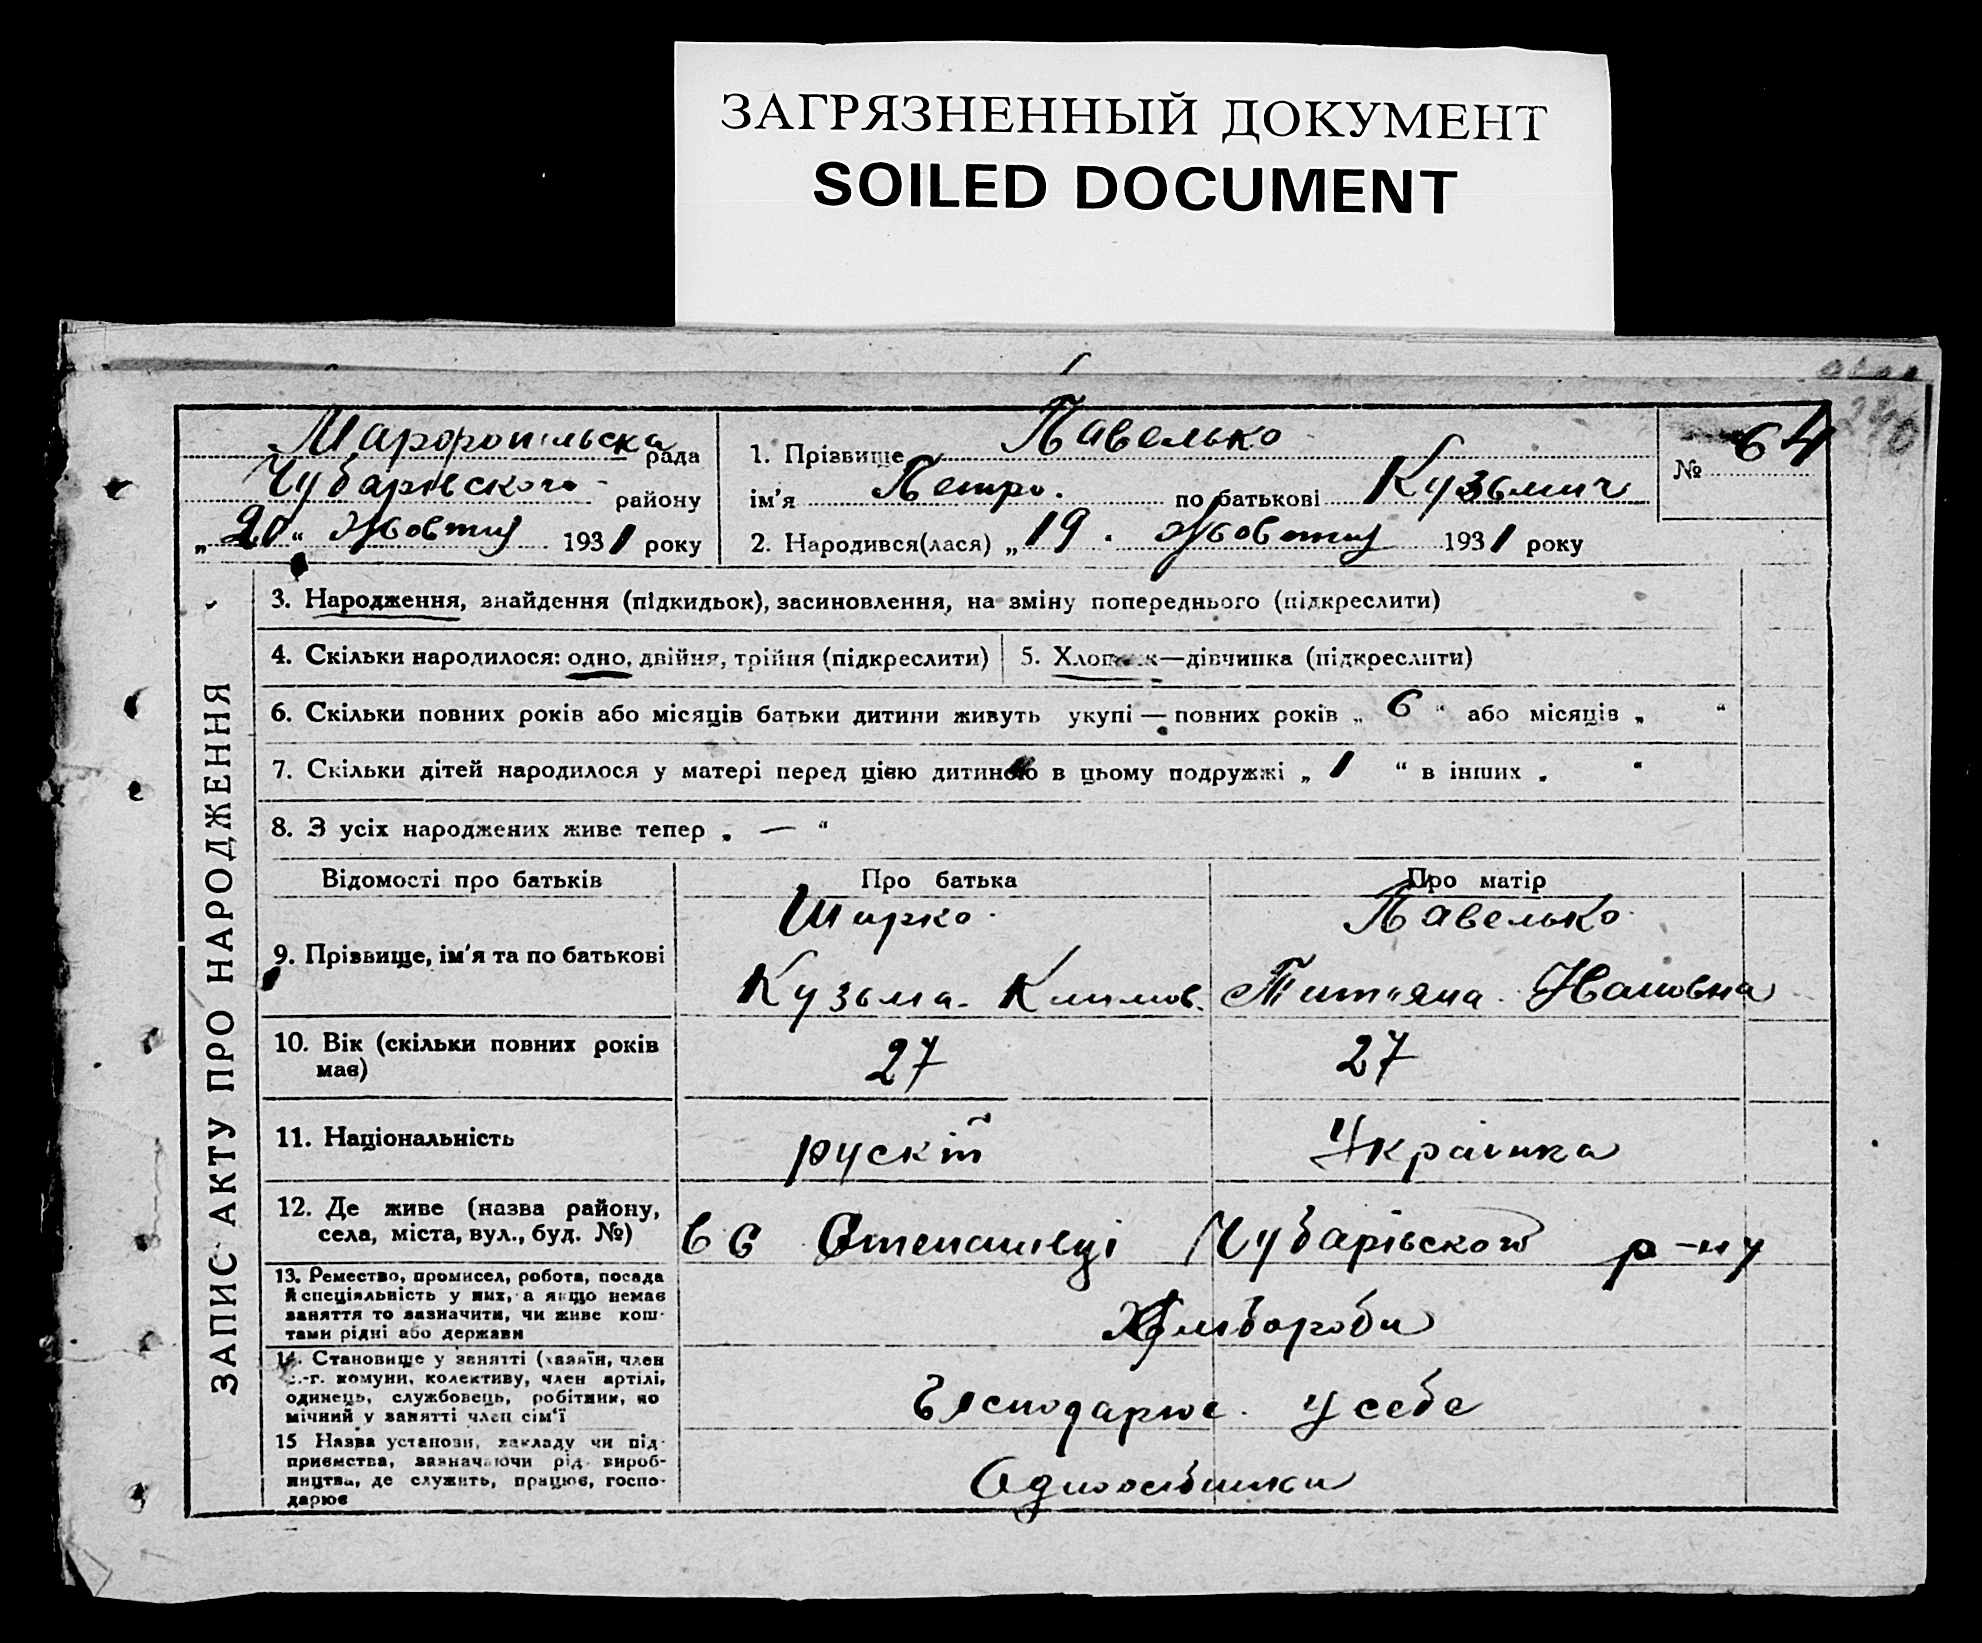 ЗАГРЯЗНЕННЫЙ ДОКУМЕНТ
SOILED DOCUMENT
рада
Чубарівського району
„20“ Жовтня 1931 року
1. Прізвище Павелько
ім'я Петро. по батькові Кузьмич
2. Народився(лася) „19. Жовтня 1931 року
№ 64
ЗАПИС АКТУ ПРО НАРОДЖЕННЯ
3. Народження, знайдення (підкидьок), засиновлення, на зміну попереднього (підкреслити)
4. Скільки народилося: одно, двійня, трійня (підкреслити)
5. Хлопчик—дівчинка (підкреслити)
6. Скільки повних років або місяців батьки дитини живуть укупі — повних років „ 6 “ або місяців „ “
7. Скільки дітей народилося у матері перед цією дитиною в цьому подружжі „ 1 “ в інших „ “
8. З усіх народжених живе тепер „ — “
Відомості про батьків
Про батька
Про матір
9. Прізвище, ім'я та по батькові
Ширко
Кузьма Климов.
Павелько
10. Вік (скільки повних років
має)
27
27
11. Національність
рускій
Українка
12. Де живе (назва району,
села, міста, вул., буд. №)
в с Степанівці Чубарівського р-ну
13. Ремество, промисел, робота, посада
й спеціяльність у них, а якщо немає
заняття то зазначити, чи живе кош-
тами рідні або держави
Хлібороби
14. Становище у занятті (хазяїн, член
с.-г. комуни, колективу, член артілі,
одинець, службовець, робітник, по
мічний у занятті член сім'ї
Господарює. У себе
15 Назва установи, закладу чи під-
приємства, зазначаючи рід вироб-
ництва, де служить, працює, госпо-
дарює
Одноосібники